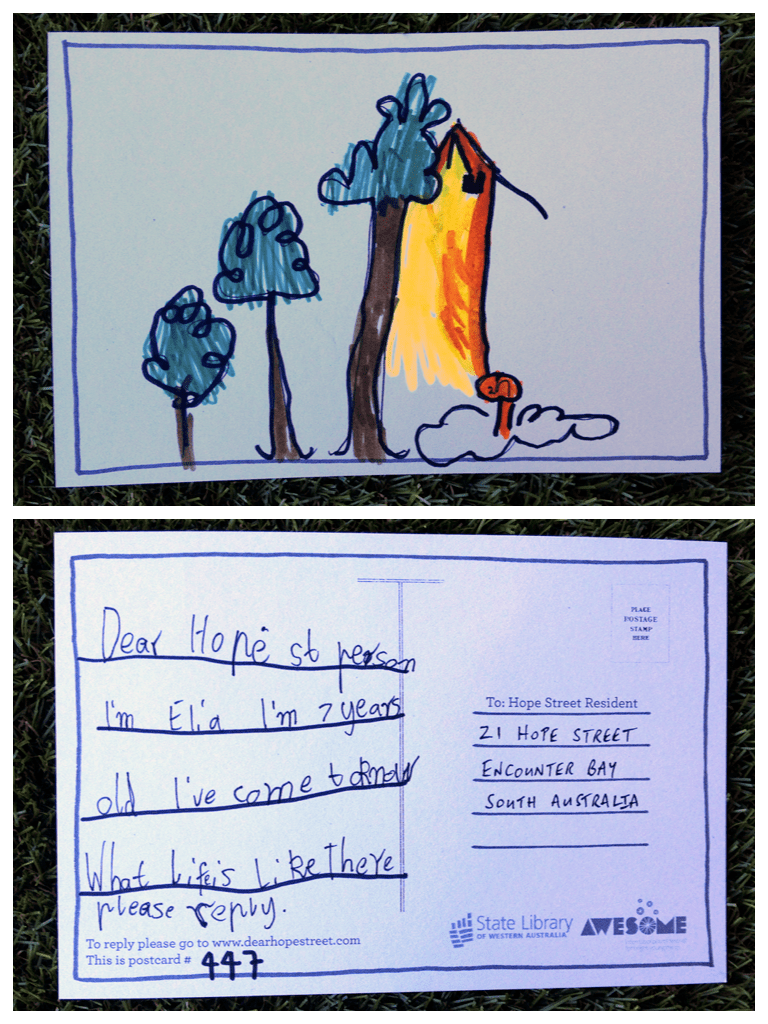 Dear Hope st person
I'm Elia I'm 7 years
old I've come to know
What Life is Like There
please reply.
To reply please go to www.dearhopestreet.com
This is postcard # 447
PLACE
POSTAGE
STAMP
HERE
To: Hope Street Resident
21 HOPE STREET
ENCOUNTER BAY
SOUTH AUSTRALIA
State Library
OF WESTERN AUSTRALIA
AWESOME